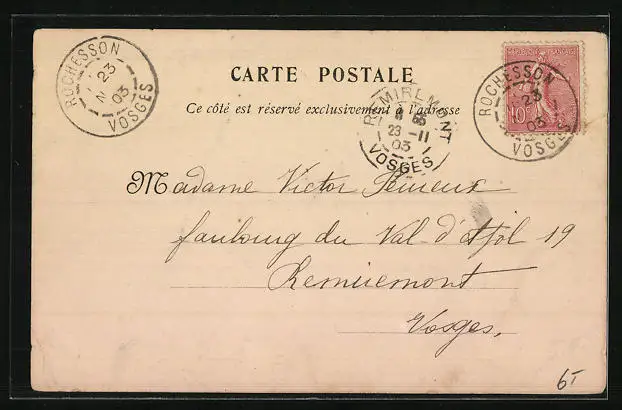 ROCHESSON
23
N
03
VOSGES
CARTE POSTALE
Ce côté est réservé exclusivement à l'adresse
REMIREMONT
23 -11
03
VOSGES
10
ROCHESSON
23
03
VOSGES
Madame Victor
faubourg du Val d'Ajol 19
Remiremont
Vosges,
6